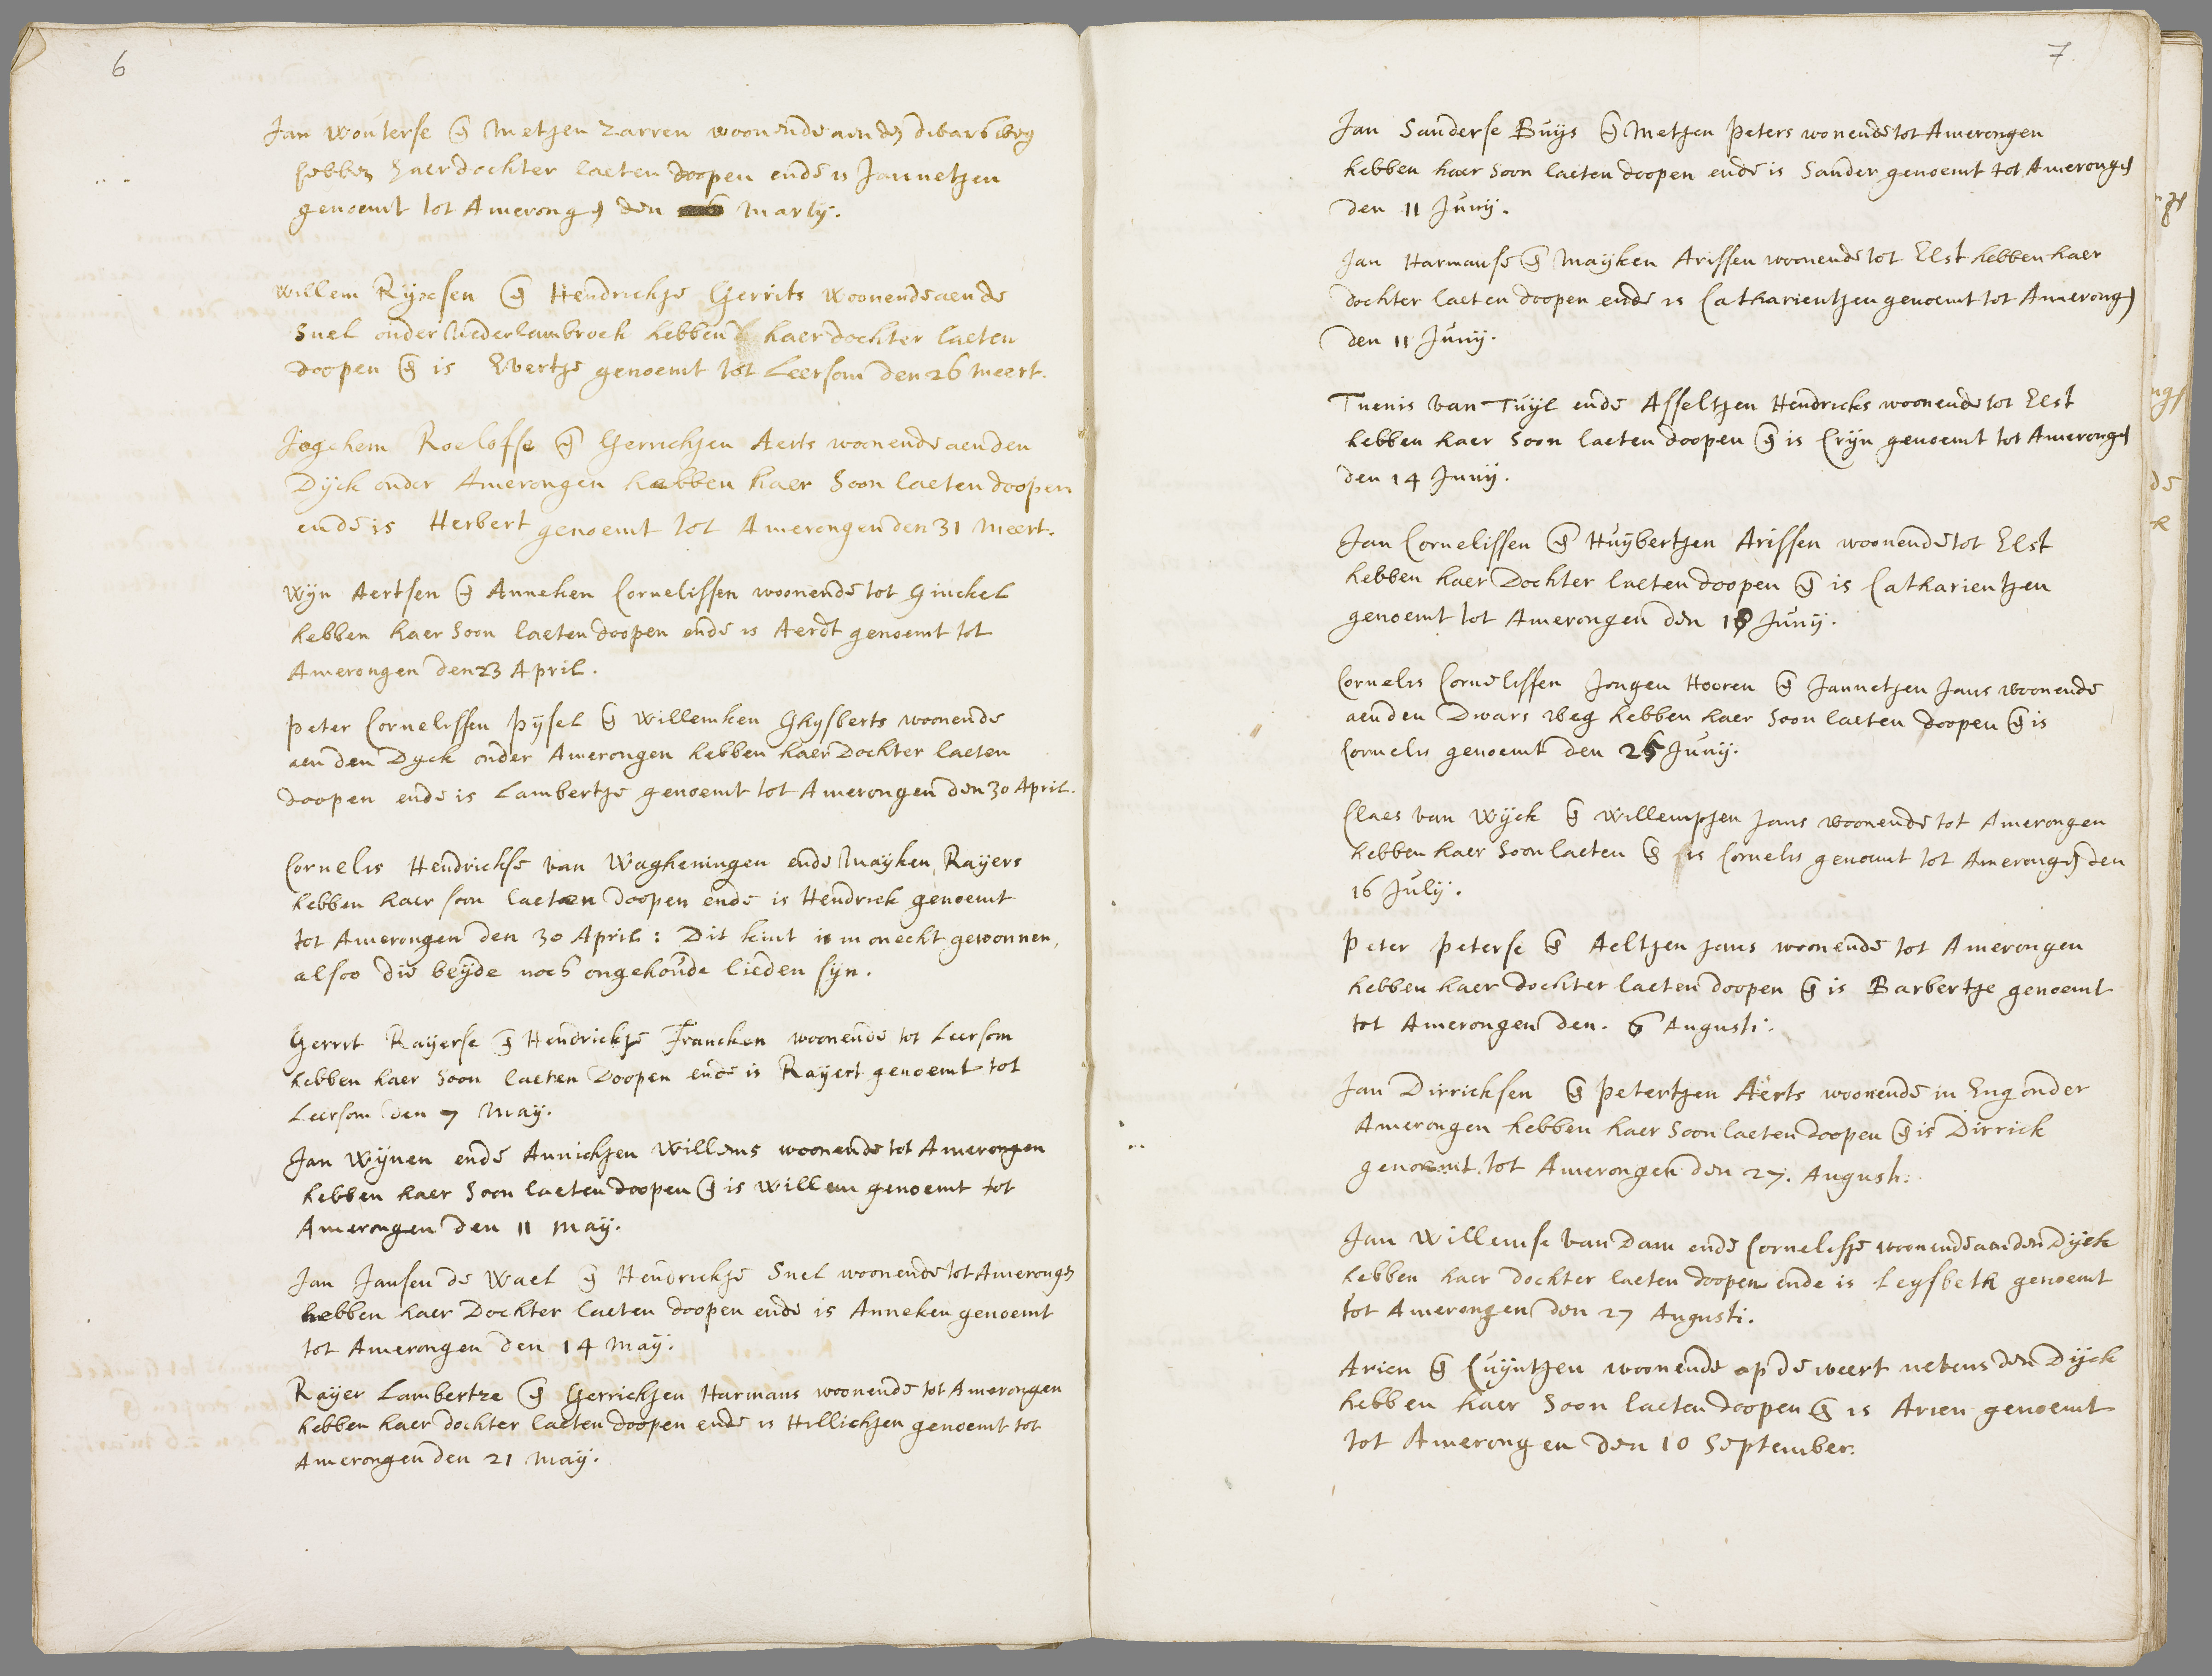 6
Jan Wouterse en Metjen Zarren woonende aen den dwars weg
hebben haer dochter laeten doopen ende is Jannetjen
genoemt tot Amerongen den Martij.
Willem Rijxsen en Hendrickje Gerrits woonende aen de
Snel onder Nederlambroek hebben haer dochter laeten
doopen en is Evertje genoemt tot Leersom den 26 Meert.
Jogchem Roelofse en Gerrichjen Aerts woonende aen den
Dijck onder Amerongen hebben haer Soon laeten doopen
ende is Herbert genoemt tot Amerongen den 31 Meert.
Wijn Aertsen en Anneken Cornelissen woonende tot Ginckel
hebben haer Soon laeten doopen ende is Aerdt genoemt tot
Amerongen den 23 April.
Peter Cornelissen Pijsel en Willemken Ghysberts woonende
aen den Dyck onder Amerongen hebben haer Dochter laeten
doopen ende is Lambertje genoemt tot Amerongen den 30 April.
Cornelis Hendrickse van Wagheningen ende Mayken Rayers
hebben haer soon laeten doopen ende is Hendrick genoemt
tot Amerongen den 30 April: Dit kint is in onecht gewonnen,
alsoo die beijde noch ongehoude lieden sijn.
Gerrit Raijerse en Hendrickje Francken woonende tot Leersom
hebben haer Soon laeten Doopen ende is Rayert genoemt tot
Leersom den 7 May.
Jan Wijnen ende Annichjen Willems woonende tot Amerongen
hebben haer Soon laeten doopen en is Willem genoemt tot
Amerongen den 11 May.
Jan Jansen de Wael en Hendrickje Snel woonende tot Amerongen
hebben haer Dochter laeten doopen ende is Anneken genoemt
tot Amerongen den 14 May.
Raijer Lambertze en Gerrichjen Harmans woonende tot Amerongen
hebben haer dochter laeten doopen ende is Hillichjen genoemt tot
Amerongen den 21 May.
7
Jan Sanderse Buijs en Metjen Peters wonende tot Amerongen
hebben haer Soon laeten doopen ende is Sander genoemt tot Amerongen
den 11 Junij.
Jan Harmanse en Maijken Arissen woonende tot Elst hebben haer
dochter laeten doopen ende is Catharientjen genoemt tot Amerongen
den 11 Junij.
Tuenis van Tuijl ende Asseltjen Hendricks woonende tot Elst
hebben haer Soon laeten doopen en is Crijn genoemt tot Amerongen
den 14 Junij.
Jan Cornelissen en Huijbertjen Arissen woonende tot Elst
hebben haer Dochter laeten doopen en is Catharientjen
genoemt tot Amerongen den 18 Junij.
Cornelis Cornelissen Jongen Hooren en Jannetjen Jans woonende
aen den Dwars Weg hebben haer Soon laeten doopen en is
Cornelis genoemt den 25 Junij.
Claes van Wijck en Willempjen Jans woonende tot Amerongen
hebben haer Soon laeten en is Cornelis genoemt tot Amerongen den
16 Julij.
Peter Peterse en Aeltjen Jans woonende tot Amerongen
hebben haer dochter laeten doopen en is Barbertje genoemt
tot Amerongen den. 6 Augusti.
Jan Dirricksen en Petertjen Aerts woonende in Eng onder
Amerongen hebben haer Soon laeten doopen en is Dirrick
genoemt tot Amerongen den 27. Augusti.
Jan Willemse van Dam ende Cornelisje woonende aen den Dijck
hebben haer dochter laeten doopen ende is Leysbeth genoemt
tot Amerongen den 27 Augusti.
Arien en Cuijntjen woonende op de weert nevens den Dijck
hebben haer Soon laeten doopen en is Arien genoemt
tot Amerongen den 10 September.